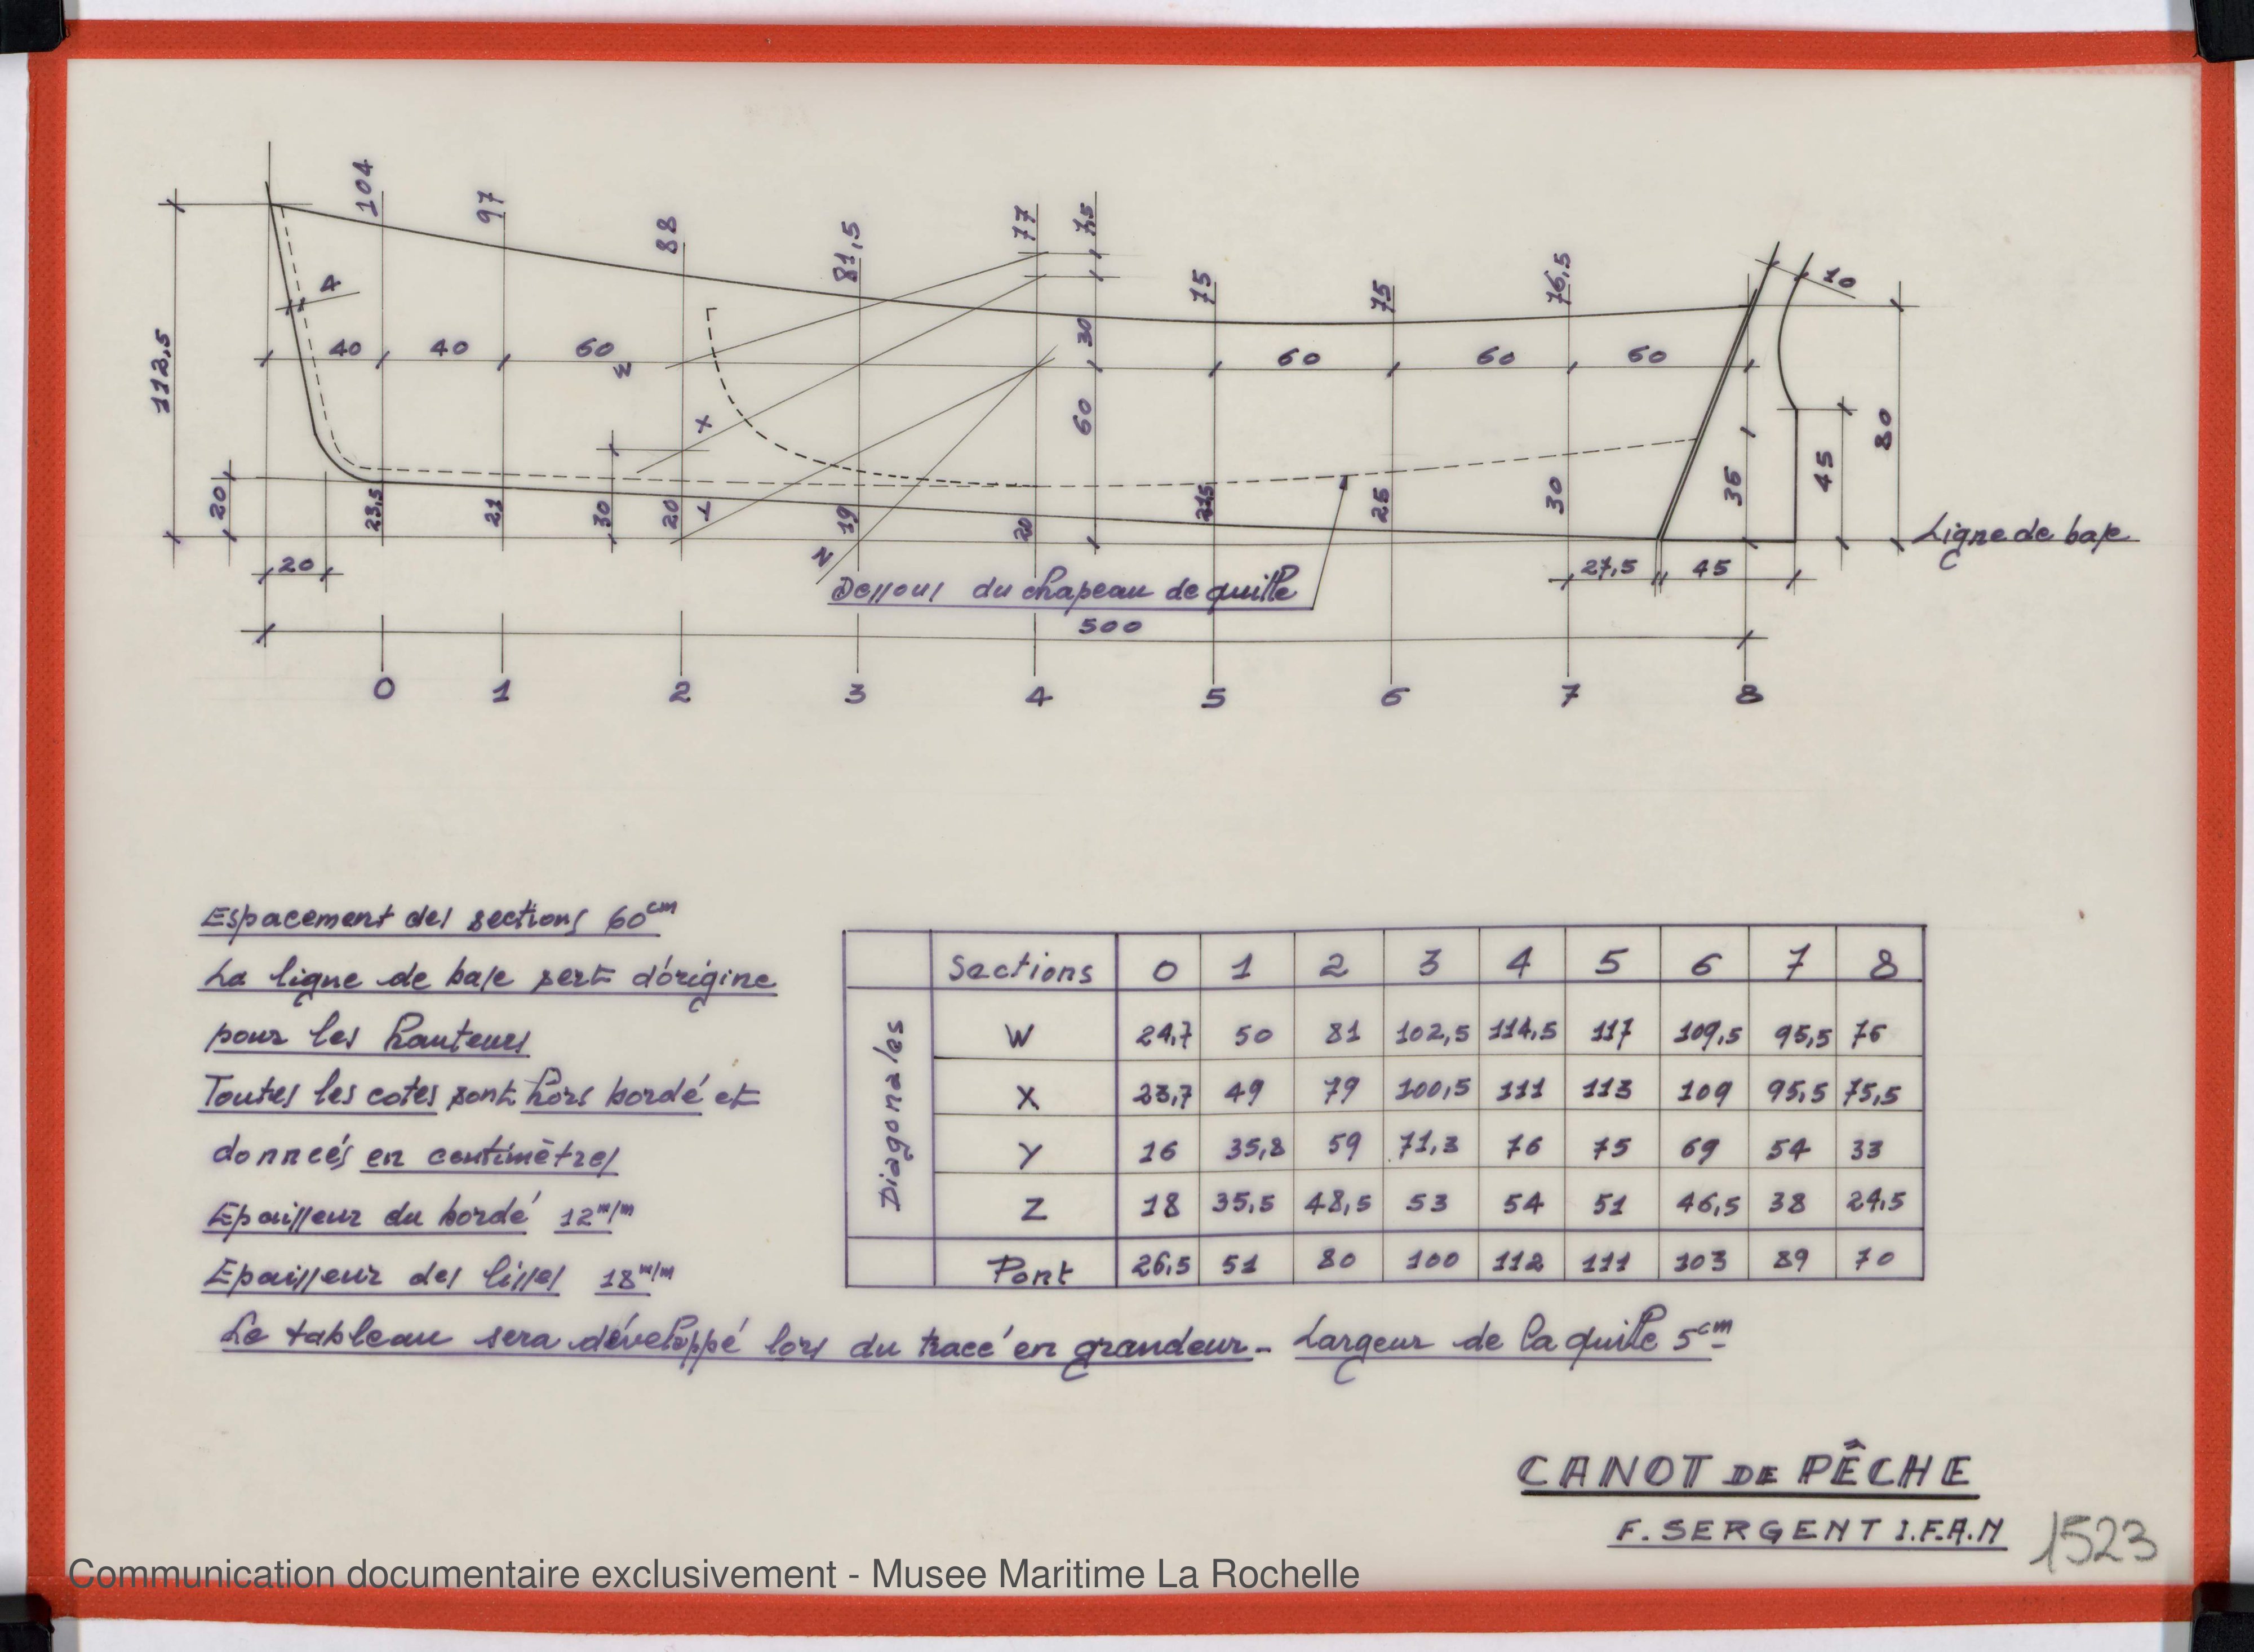 104
97
88
81,5
77
7,5
75
75
76,5
10
4
112,5
40
40
60
W
30
60
60
60
X
60
80
20
23,5
21
30
20
Y
19
20
21,5
25
30
35
45
Ligne de base
20
Z
Dessous du chapeau de quille
27,5
45
500
0 1 2 3 4 5 6 7 8
Espacement des sections 60 cm
La ligne de base sert d'origine
pour les hauteurs
Toutes les cotes sont hors bordé et
donneés en centimètres
Epaisseur du bordé 12 m/m
Epaisseur des lisses 18 m/m
Sections 0 1 2 3 4 5 6 7 8
Diagonales
W 24,7 50 81 102,5 114,5 117 109,5 95,5 76
X 23,7 49 79 100,5 111 113 109 95,5 75,5
Y 16 35,8 59 71,3 76 75 69 54 33
Z 18 35,5 48,5 53 54 51 46,5 38 24,5
Pont 26,5 51 80 100 112 111 103 89 70
Le tableau sera développé lors du tracé en grandeur - Largeur de la quille 5 cm
CANOT DE PÊCHE
F. SERGENT I.F.A.N
1523
Communication documentaire exclusivement - Musee Maritime La Rochelle